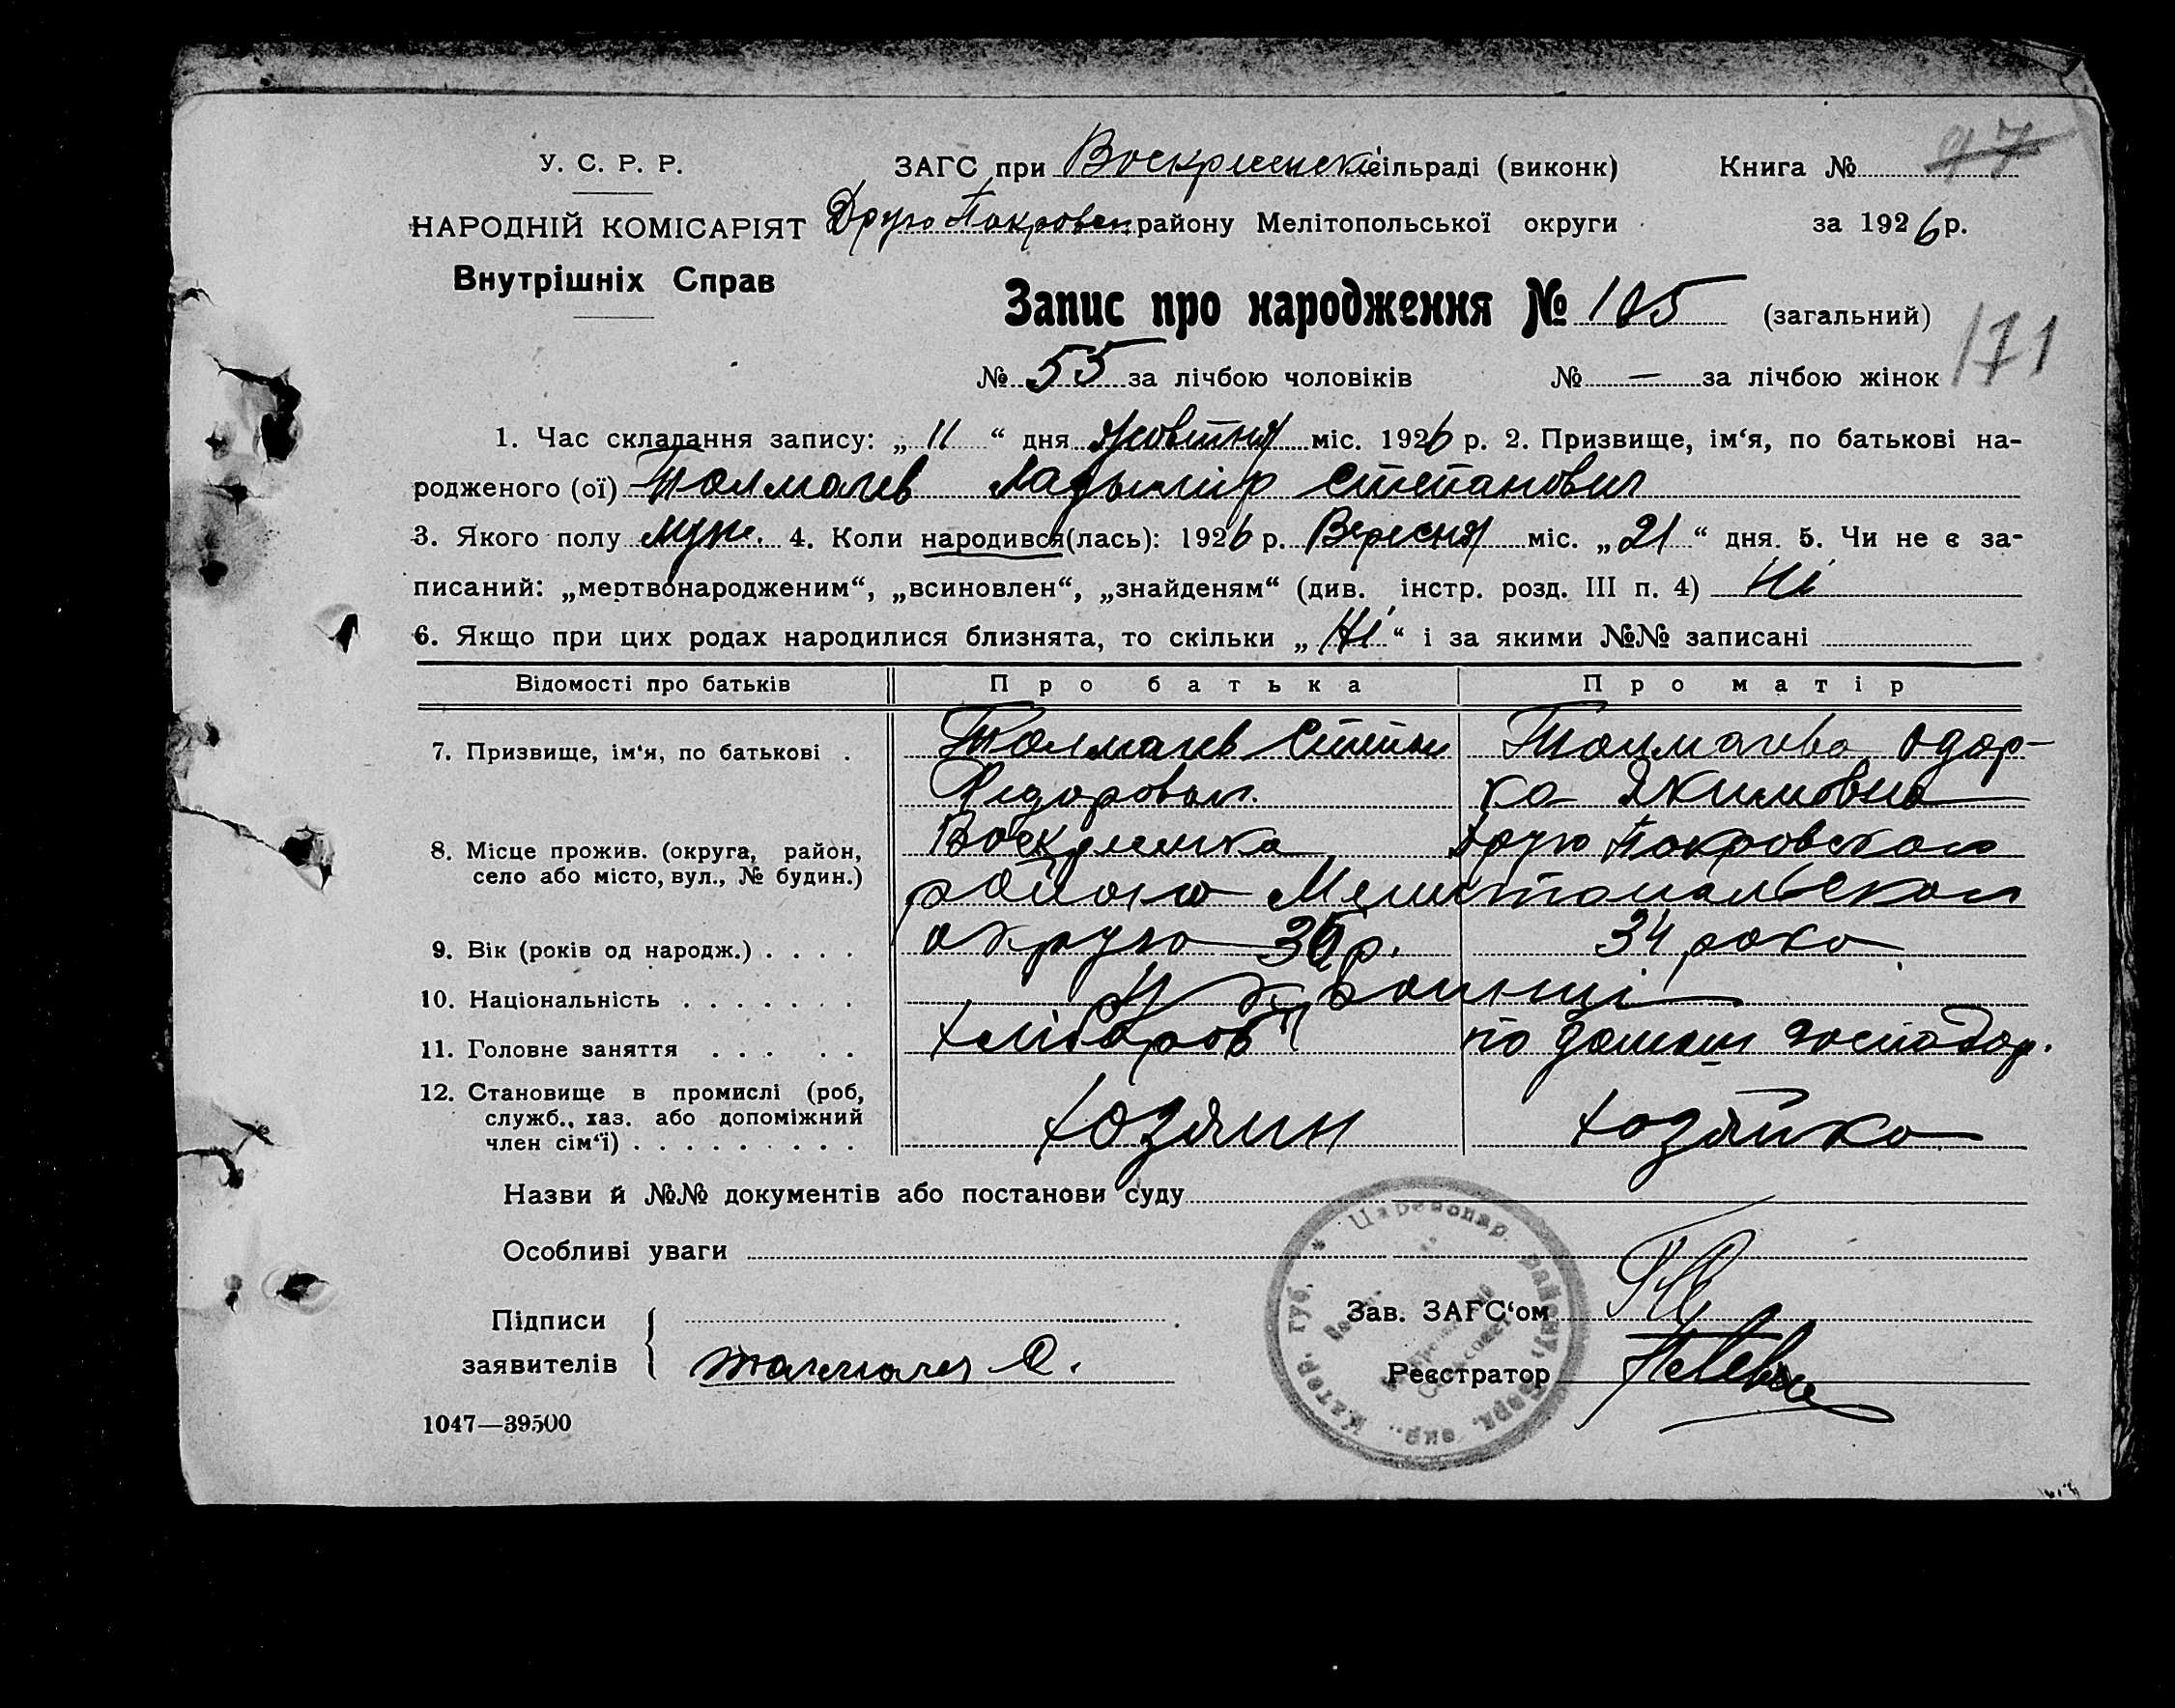 У. С. Р. Р.
НАРОДНІЙ КОМІСАРІЯТ
Внутрішніх Справ
ЗАГС при Воскрисенскі сільраді (виконк)
Друго Покровск. району Мелітопольської округи
Книга № 97
за 1926 р.
Запис про народження № 105 (загальний)
171
№ 55 за лічбою чоловіків № — за лічбою жінок
1. Час складання запису: „ 11 “ дня Жовтня міс. 1926 р. 2. Призвище, ім‘я, по батькові на-
родженого (ої) Толмачев Ладымир Степанович
3. Якого полу муж. 4. Коли народився(лась): 1926 р. Вересня міс. „ 21 “ дня. 5. Чи не є за-
писаний: „мертвонародженим“, „всиновлен“, „знайденям“ (див. інстр. розд. III п. 4) Ні
6. Якщо при цих родах народилися близнята, то скільки „ Ні “ і за якими №№ записані
Відомості про батьків Про батька Про матір
7. Призвище, ім‘я, по батькові . Толмачев Степан Толмачева Одар-
Федорович. ка Якимовна
8. Місце прожив. (округа, район, Воскрисенка Друго Покровского
село або місто, вул., № будин.) району Мелитопольскои
9. Вік (років од народж.) . . . . округи р. 34 роки
10. Національність . . . . . . . Украинці
11. Головне заняття . . . . . хлібороб по домаш господар.
12. Становище в промислі (роб,
служб., хаз. або допоміжний
член сім‘ї) . . . . . . . . . хозяин хозяйка
Назви й №№ документів або постанови суду
Особливі уваги
Підписи
заявителів Толмачев
Зав. ЗАГС‘ом
Реєстратор
Царевопар. району, окр., Катер. губ. *
1047—39500